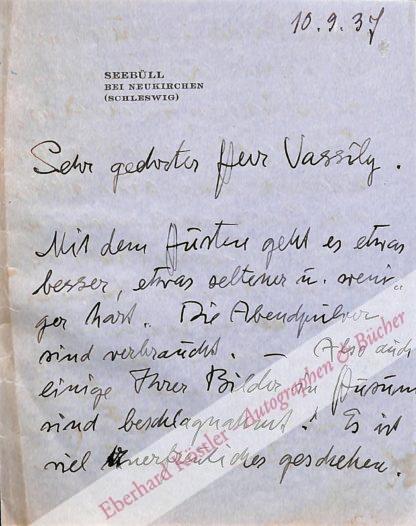 10.9.37
SEEBÜLL
BEI NEUKIRCHEN
(SCHLESWIG)
Sehr geehrter Herr Vassily.
Mit dem Husten geht es etwas
besser, etwas seltener u. weni-
ger hart. Die Abendpulver
sind verbraucht. — Also auch
einige Ihrer Bilder in Husum
sind beschlagnahmt! Es ist
viel Unerfreuliches geschehen.
Eberhard Köstler Autographen & Bücher